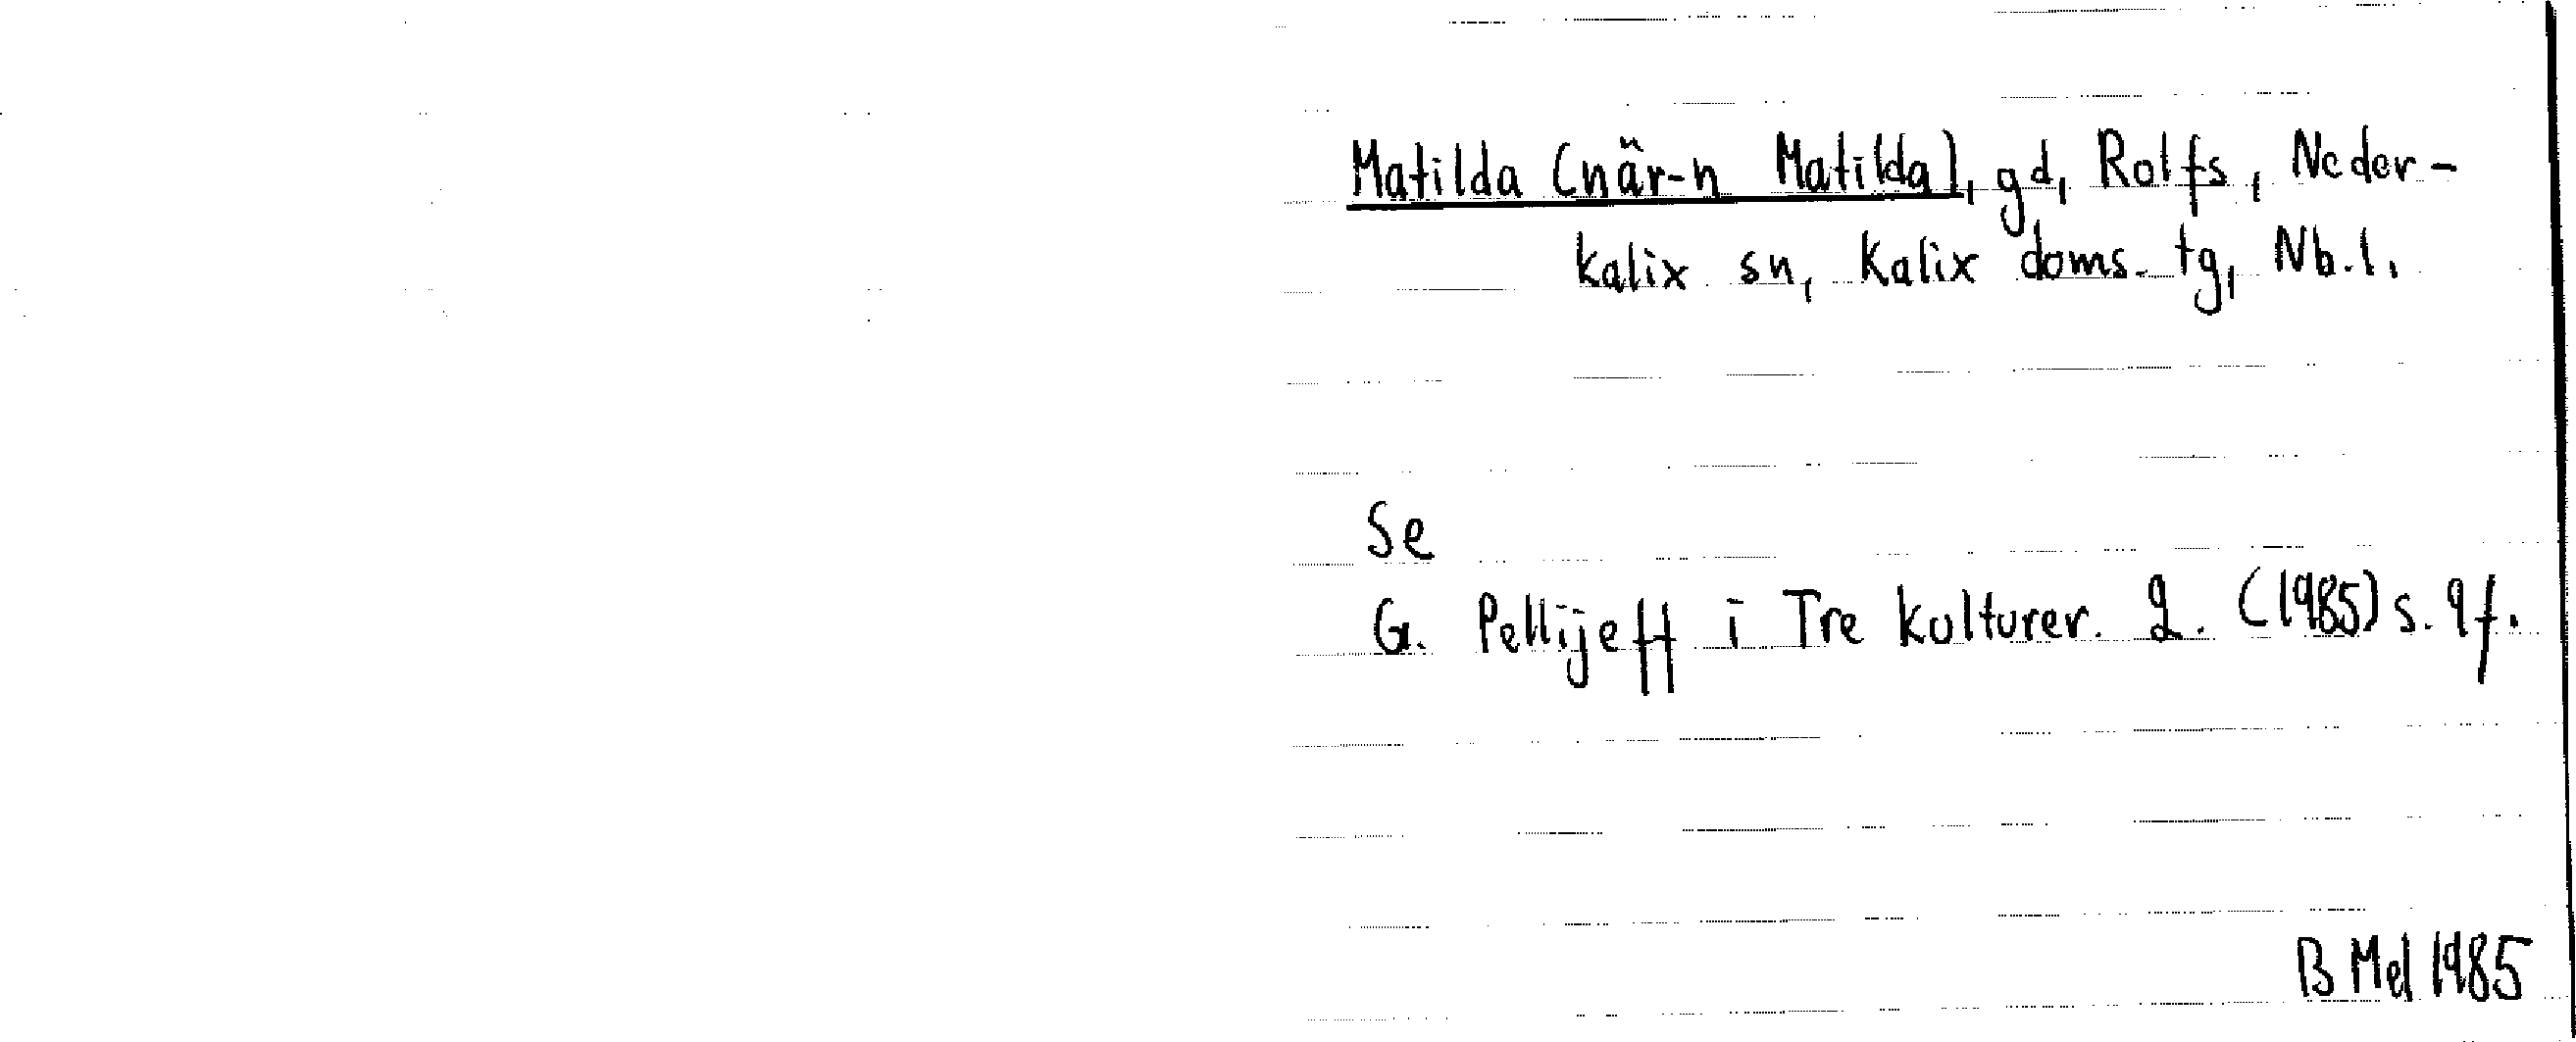 Matilda (när-n Matilda), gd, Rolfs, Neder-
kalix sn, Kalix doms. tg, Nb. l.
Se
G. Pellijeff i Tre kulturer. 2. (1985) s. 9 f.
B Mel 1985